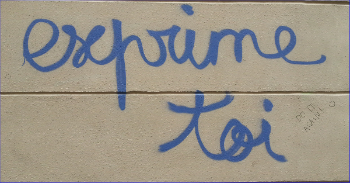 exprime
toi